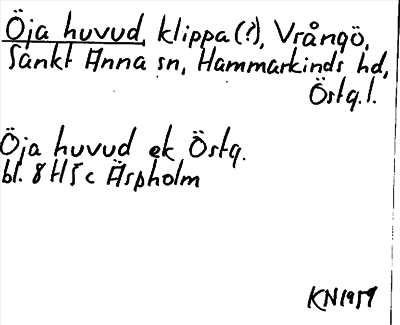 Öja huvud, klippa(?), Vrångö,
Sankt Anna sn, Hammarkinds hd,
Östg.l.
Öja huvud ek Östg.
bl. 8 H 5 c Äspholm
KN 1959